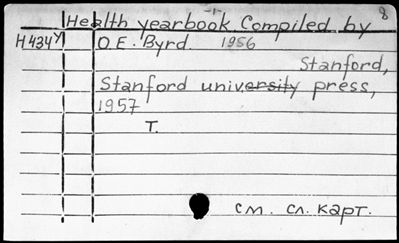 8
-"-
Health yearbook. Compiled by
H434y O.E. Byrd. 1956
Stanford,
Stanford university press,
1957
T.
см. сл. карт.